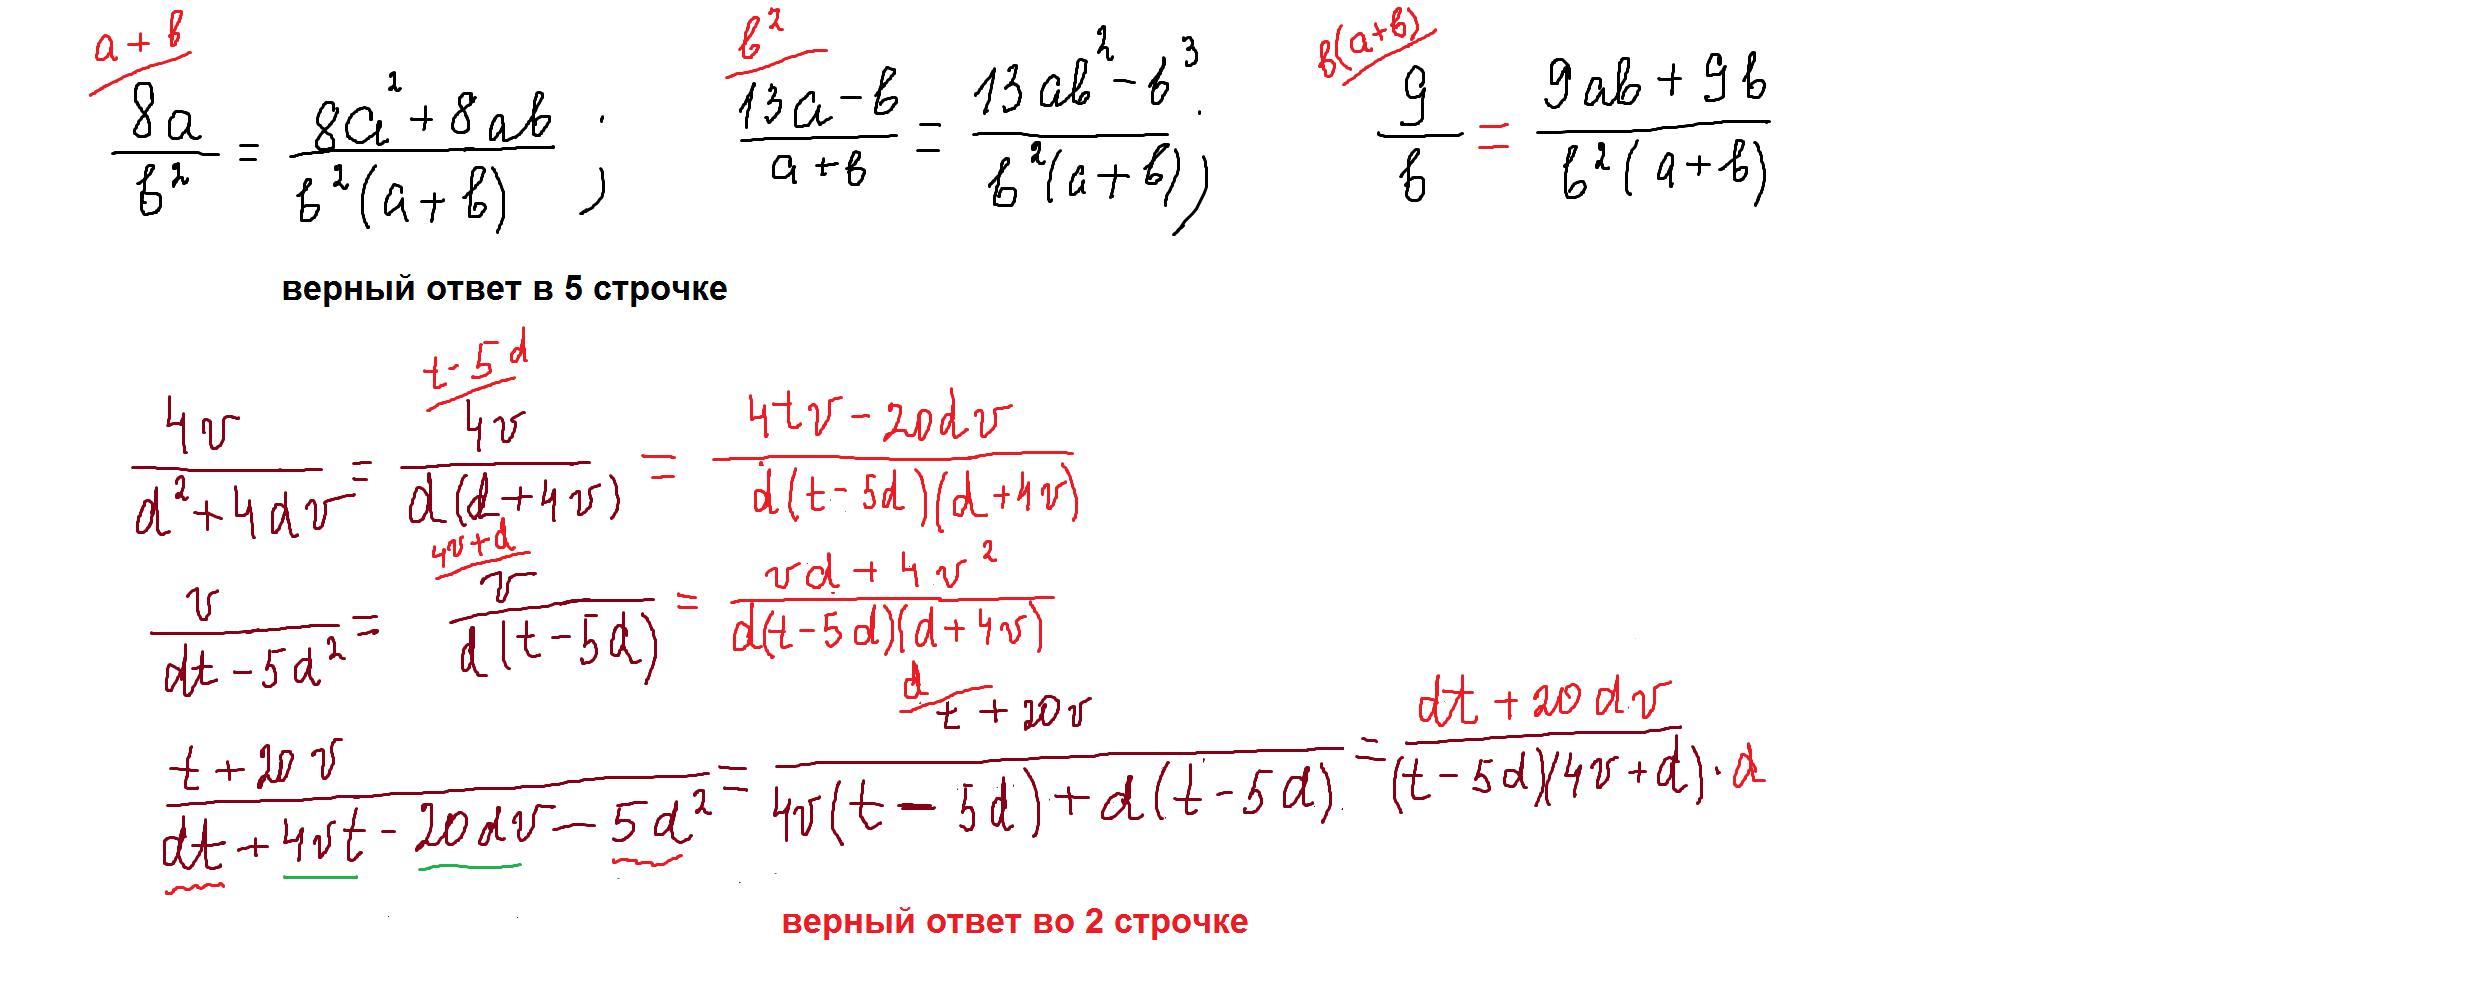 a + в        в²        в(a+в)
8a/в² = (8a² + 8aв)/(в²(a + в)) ;   (13a – в)/(a + в) = (13aв² – в³)/(в²(a + в)) ;   9/в = (9aв + 9в)/(в²(a + в))
верный ответ в 5 строчке
t - 5d
4v/(d² + 4dv) = 4v/(d(d + 4v)) = (4tv – 20dv)/(d(t – 5d)(d + 4v))
4v + d
v/(dt – 5d²) = v/(d(t – 5d)) = (vd + 4v²)/(d(t – 5d)(d + 4v))
d
(t + 20v)/(dt + 4vt – 20dv – 5d²) = (t + 20v)/(4v(t – 5d) + d(t – 5d)) = (dt + 20dv)/((t – 5d)(4v + d) · d)
верный ответ во 2 строчке